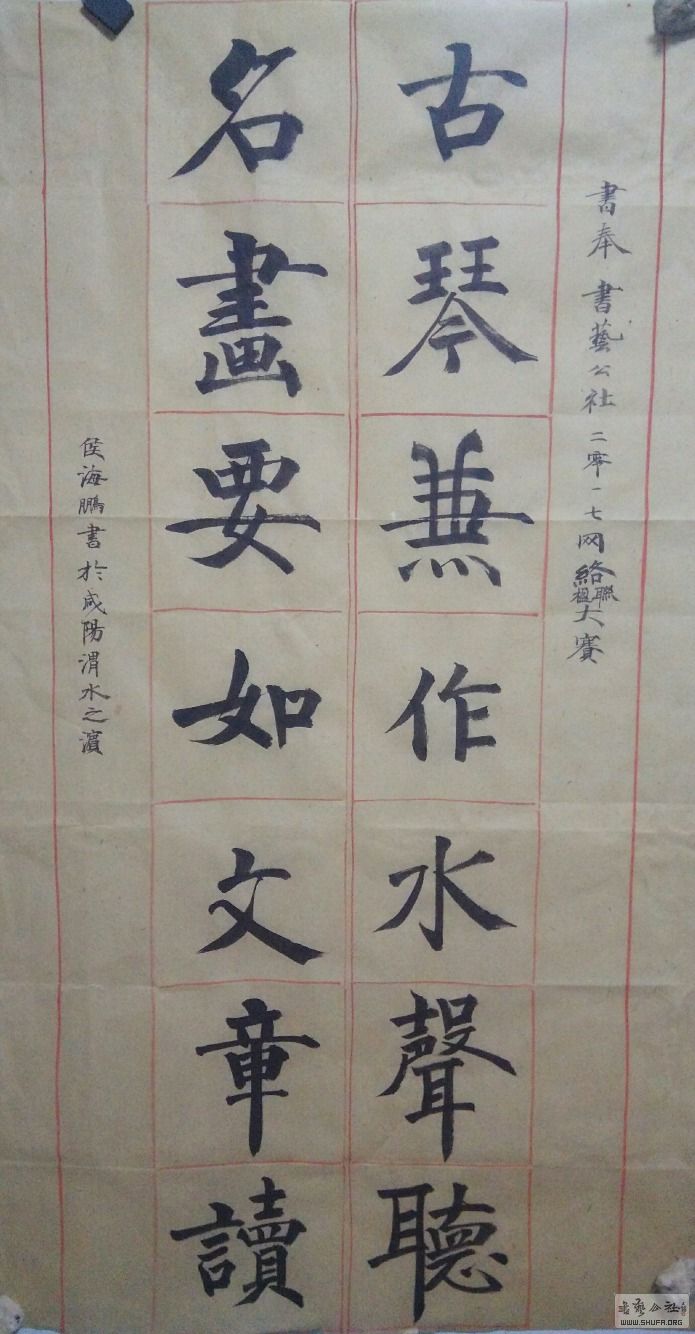 書奉書藝公社二零一七网絡楹聯大賽
古琴兼作水聲聽
名畫要如文章讀
侯海鵬書於咸陽渭水之濱
書藝公社
WWW.SHUFA.ORG